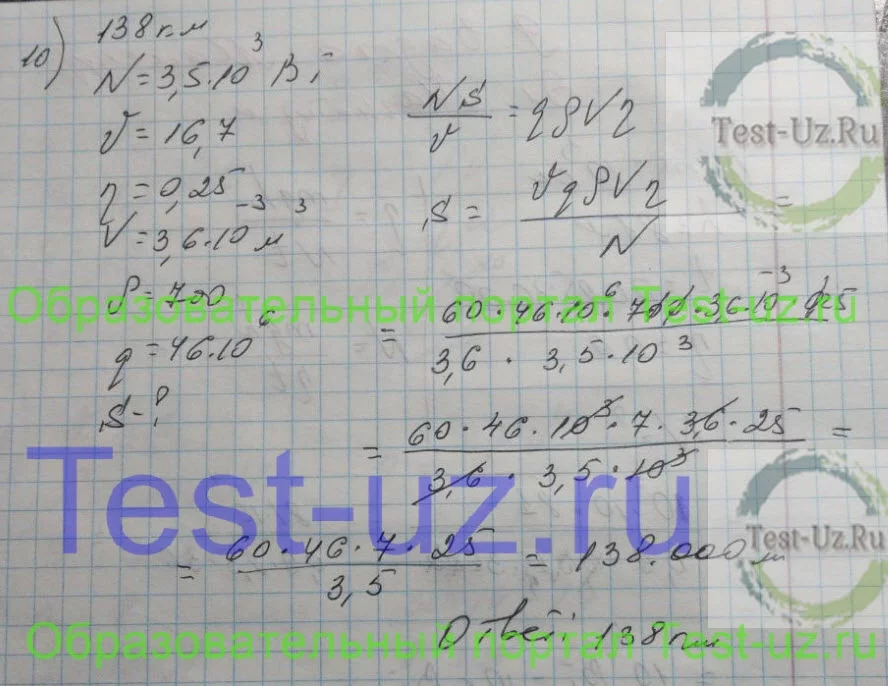 10) 138 км
N = 3,5·10³ Вт
v = 16,7
η = 0,25
V = 3,6·10⁻³ м³
ρ = 700
q = 46·10⁶
S - ?
NS/v = qρVη
S = vqρVη/N =
= 60·46·10⁶·700·3,6·10⁻³·0,25 / 3,6 · 3,5·10³
= 60·46·10³·7·3,6·25 / 3,6·3,5·10³ =
= 60·46·7·25 / 3,5 = 138.000 м
Ответ: 138 км
Test-Uz.Ru
Образовательный портал Test-uz.ru
Test-uz.ru
Test-Uz.Ru
Образовательный портал Test-uz.ru